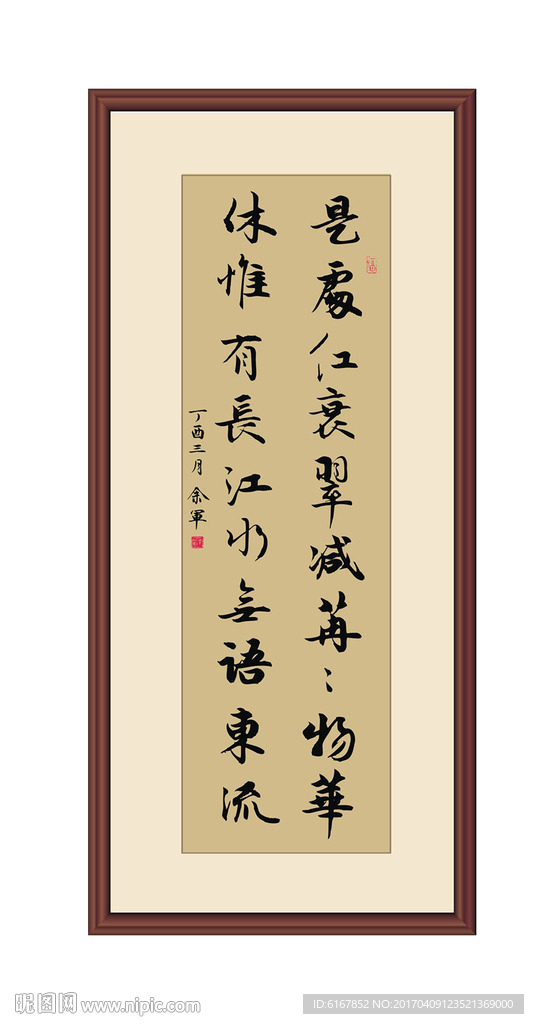 是處红衰翠减苒〻物華
休惟有長江水無語東流
丁酉三月 余軍
昵图网 www.nipic.com
ID:6167852 NO:20170409123521369000